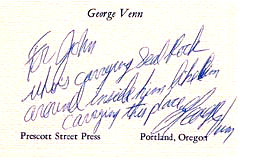 George Venn
For John
who's carrying Seed Rock
around inside him like I'm
carrying this place
George Venn
Prescott Street Press Portland, Oregon